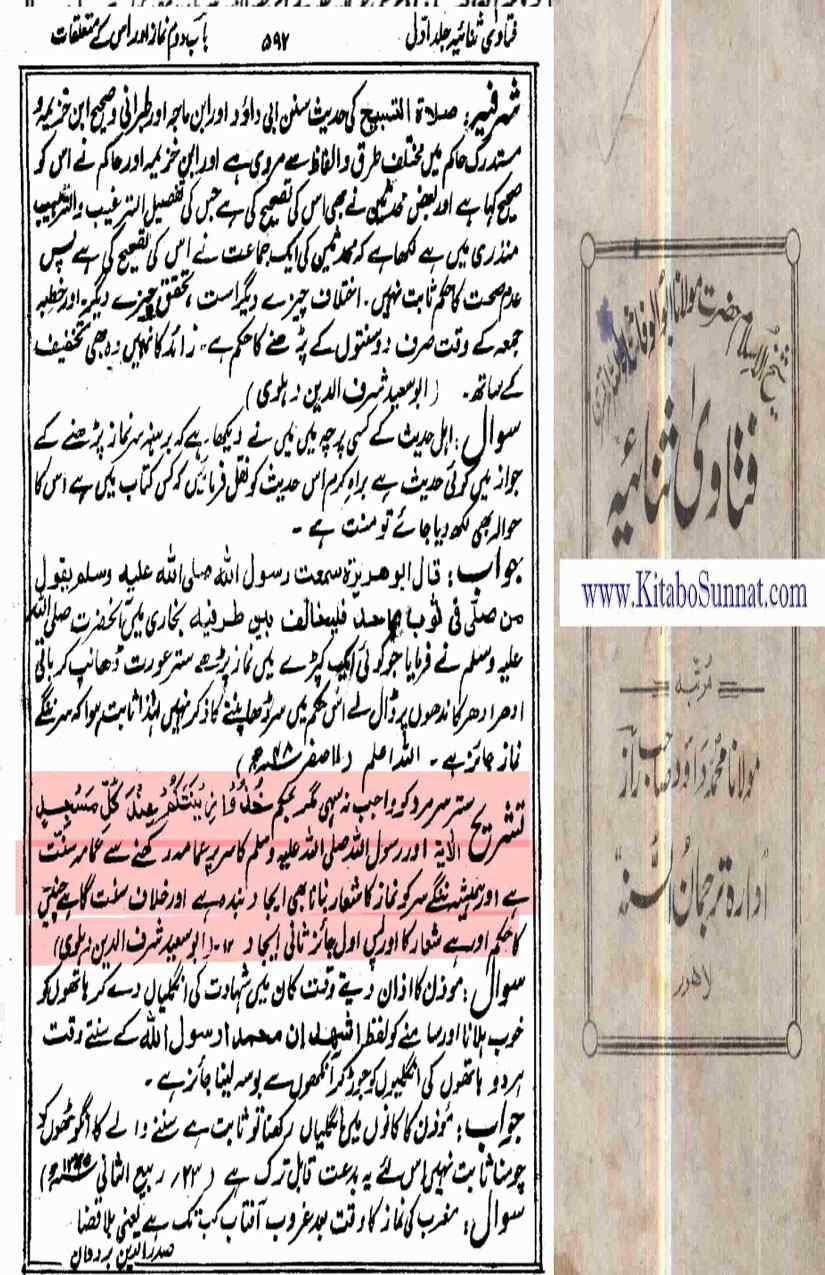 فتاویٰ ثنائیہ جلد اول ۵۹۲ باب دوم نماز اور اس کے متعلقات
شرفیہ: صلاۃ التسبیح کی حدیث سنن ابی داؤد اور ابن ماجہ اور طبرانی و صحیح ابن خزیمہ و
مستدرک حاکم میں مختلف طرق و الفاظ سے مروی ہے اور ابن خزیمہ اور حاکم نے اس کو
صحیح کہا ہے اور بعض محدثین نے بھی اس کی تصحیح کی ہے جس کی تفصیل الترغیب والترہیب
منذری میں ہے لکھا ہے کہ محدثین کی ایک جماعت نے اس کی تصحیح کی ہے پس
عدم صحت کا حکم ثابت نہیں۔ اختلاف چیزے دیگر است، تحقیق چیزے دیگر۔ اور خطبہ
جمعہ کے وقت صرف دو سنتوں کے پڑھنے کا حکم ہے۔ زائد کا نہیں وہ بھی تخفیف
کے ساتھ۔ (ابو سعید شرف الدین دہلوی)
سوال: اہل حدیث کے کسی پرچہ میں میں نے دیکھا ہے کہ برہنہ سر نماز پڑھنے کے
جواز میں کوئی حدیث ہے براہ کرم اس حدیث کو نقل فرمائیں کہ کس کتاب میں ہے اس کا
حوالہ بھی لکھ دیا جائے تو منت ہے۔
جواب: قال ابو ھریرۃ سمعت رسول اللہ صلی اللہ علیہ وسلم یقول
من صلّٰی فی ثوب واحد فلیخالف بین طرفیہ بخاری میں آنحضرت صلی اللہ
علیہ وسلم نے فرمایا جو کوئی ایک کپڑے میں نماز پڑھے ستر عورت ڈھانپ کر باقی
ادھر ادھر کاندھوں پر ڈال لے اس حکم میں سر ڈھانپنے کا ذکر نہیں لہٰذا ثابت ہوا کہ سر ننگے
نماز جائز ہے۔ اللہ اعلم
تشریح ستر سر مرد کو واجب نہ سہی مگر بحکم خُذُوْا زِیْنَتَکُمْ عِنْدَ کُلِّ مَسْجِدٍ
الآیۃ اور رسول اللہ صلی اللہ علیہ وسلم کا سر پر عمامہ رکھنے سے عمامہ سنت
ہے اور ہمیشہ ننگے سر کو نماز کا شعار بنانا بھی ایجاد بندہ ہے اور خلاف سنت گاہے چنیں
کا حکم اور ہے شعار کا اور پس اول جائز ثانی ایجاد ۱۲۔ (ابو سعید شرف الدین دہلوی)
سوال: مؤذن کا اذان دیتے وقت کان میں شہادت کی انگلیاں دے کر ہاتھوں کو
خوب ہلانا اور سامنے کو لفظ اشھد ان محمد ارسول اللہ کے سنتے وقت
ہر دو ہاتھوں کی انگلیوں کو جوڑ کر آنکھوں سے بوسہ لینا جائز ہے۔
جواب: مؤذن کا کانوں میں انگلیاں رکھنا تو ثابت ہے سننے والے کا انگوٹھوں کو
چومنا ثابت نہیں اس لئے یہ بدعت قابل ترک ہے (۲۳؍ ربیع الثانی
سوال: مغرب کی نماز کا وقت بعد غروب آفتاب کب تک ہے یعنی بلا قضا
صدر الدین بردوان
شیخ الاسلام حضرت مولانا ابوالوفا ثناء اللہ امرتسری
فتاویٰ ثنائیہ
www.KitaboSunnat.com
مرتبہ
مولانا محمد داؤد صاحب راز
ادارہ ترجمان السنہ
لاہور